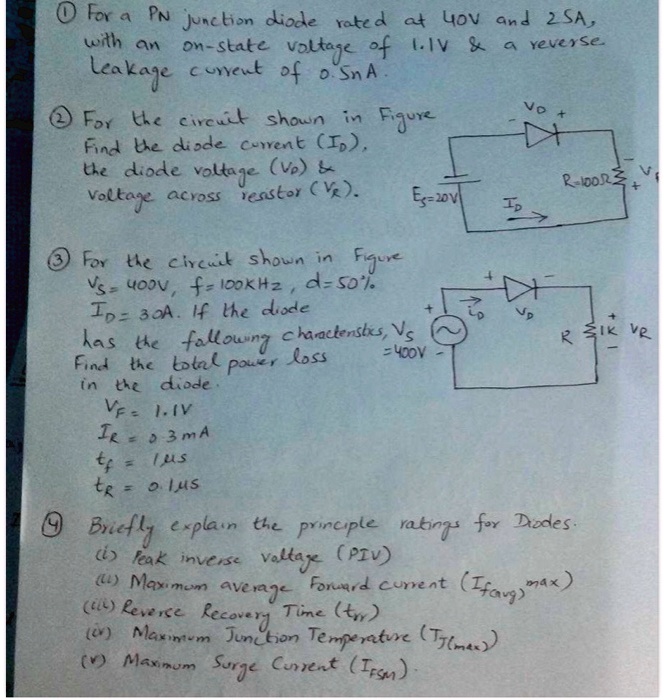 ① For a PN junction diode rated at 40V and 25A,
with an on-state voltage of 1.1V & a reverse
Leakage current of 0.5nA.
② For the circuit shown in Figure
Find the diode current (ID),
the diode voltage (VD) &
voltage across resistor (VR).
- VD +
R=100Ω
-
+
ES=20V
ID
③ For the circuit shown in Figure
VS = 400V, f=100KHz, d=50%
ID = 30A. If the diode
has the following characteristics,
Find the total power loss
in the diode.
VF = 1.1V
IR = 0.3mA
tf = 1μs
tR = 0.1μs
VS
=400V
+
-
iD
+ VD -
R
1K
+
-
VR
④ Briefly explain the principle ratings for Diodes.
(i) Peak inverse voltage (PIV)
(ii) Maximum average Forward current (If(avg)max)
(iii) Reverse Recovery Time (trr)
(iv) Maximum Junction Temperature (TJ(max))
(v) Maximum Surge Current (IFSM).